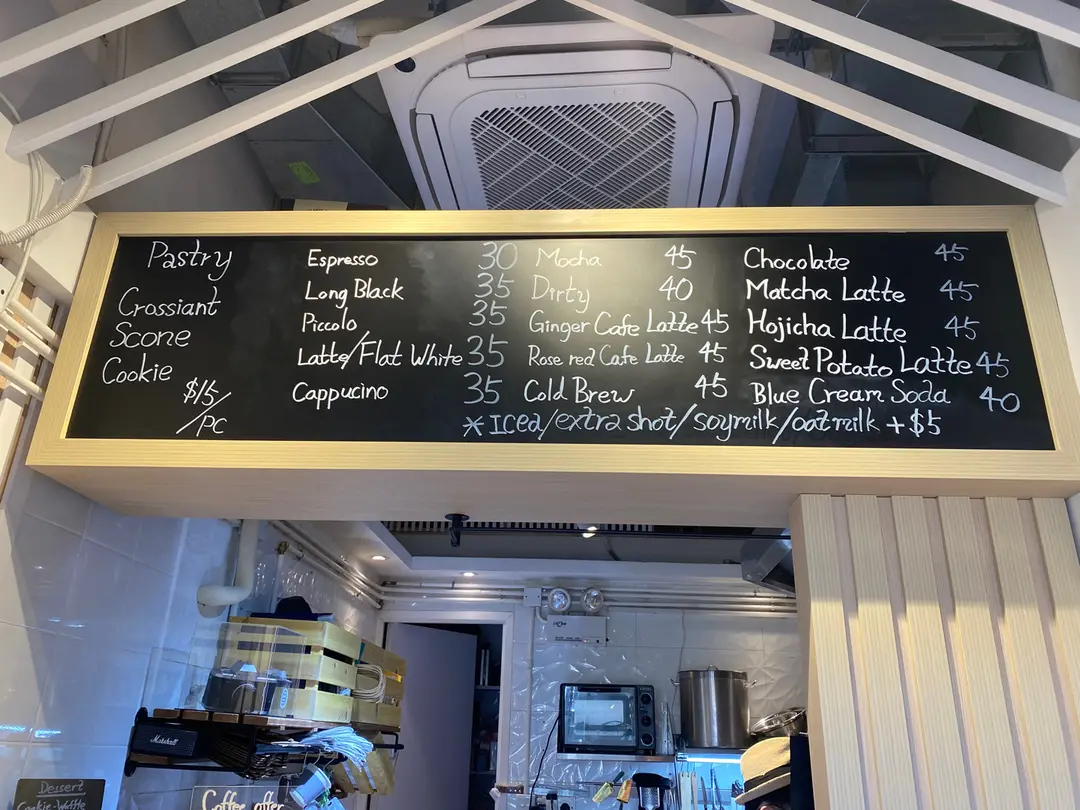 Pastry
Crossiant
Scone
Cookie
$15/
/PC
Espresso 30
Long Black 35
Piccolo 35
Latte/Flat White 35
Cappucino 35
Mocha 45
Dirty 40
Ginger Cafe Latte 45
Rose red Cafe Latte 45
Cold Brew 45
Chocolate 45
Matcha Latte 45
Hojicha Latte 45
Sweet Potato Latte 45
Blue Cream Soda 40
* Iced/extra shot/soymilk/oatmilk +$5
Marshall
Dessert
Cookie-Waffle
Coffee offer